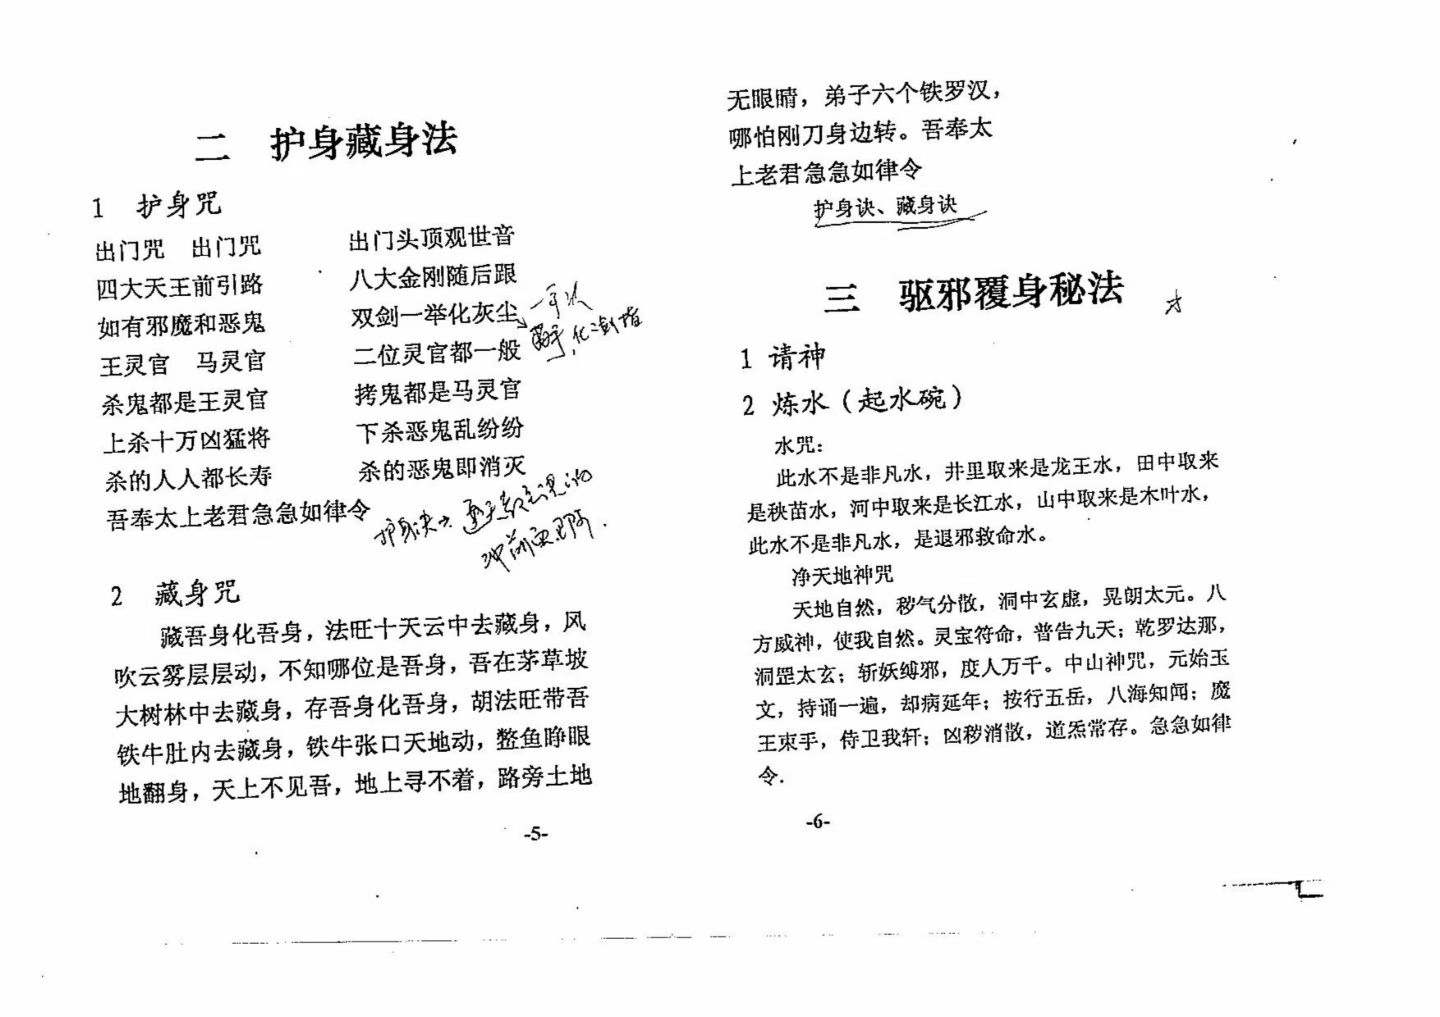 二 护身藏身法
1 护身咒
出门咒 出门咒 出门头顶观世音
四大天王前引路 八大金刚随后跟
如有邪魔和恶鬼 双剑一举化灰尘
王灵官 马灵官 二位灵官都一般
杀鬼都是王灵官 拷鬼都是马灵官
上杀十万凶猛将 下杀恶鬼乱纷纷
杀的人人都长寿 杀的恶鬼即消灭
吾奉太上老君急急如律令
护身诀
2 藏身咒
藏吾身化吾身，法旺十天云中去藏身，风
吹云雾层层动，不知哪位是吾身，吾在茅草坡
大树林中去藏身，存吾身化吾身，胡法旺带吾
铁牛肚内去藏身，铁牛张口天地动，鳖鱼睁眼
地翻身，天上不见吾，地上寻不着，路旁土地
-5-
无眼睛，弟子六个铁罗汉，
哪怕刚刀身边转。吾奉太
上老君急急如律令
护身诀、藏身诀
三 驱邪覆身秘法
1 请神
2 炼水（起水碗）
水咒：
此水不是非凡水，井里取来是龙王水，田中取来
是秧苗水，河中取来是长江水，山中取来是木叶水，
此水不是非凡水，是退邪救命水。
净天地神咒
天地自然，秽气分散，洞中玄虚，晃朗太元。八
方威神，使我自然。灵宝符命，普告九天；乾罗达那，
洞罡太玄；斩妖缚邪，度人万千。中山神咒，元始玉
文，持诵一遍，却病延年；按行五岳，八海知闻；魔
王束手，侍卫我轩；凶秽消散，道炁常存。急急如律
令.
-6-